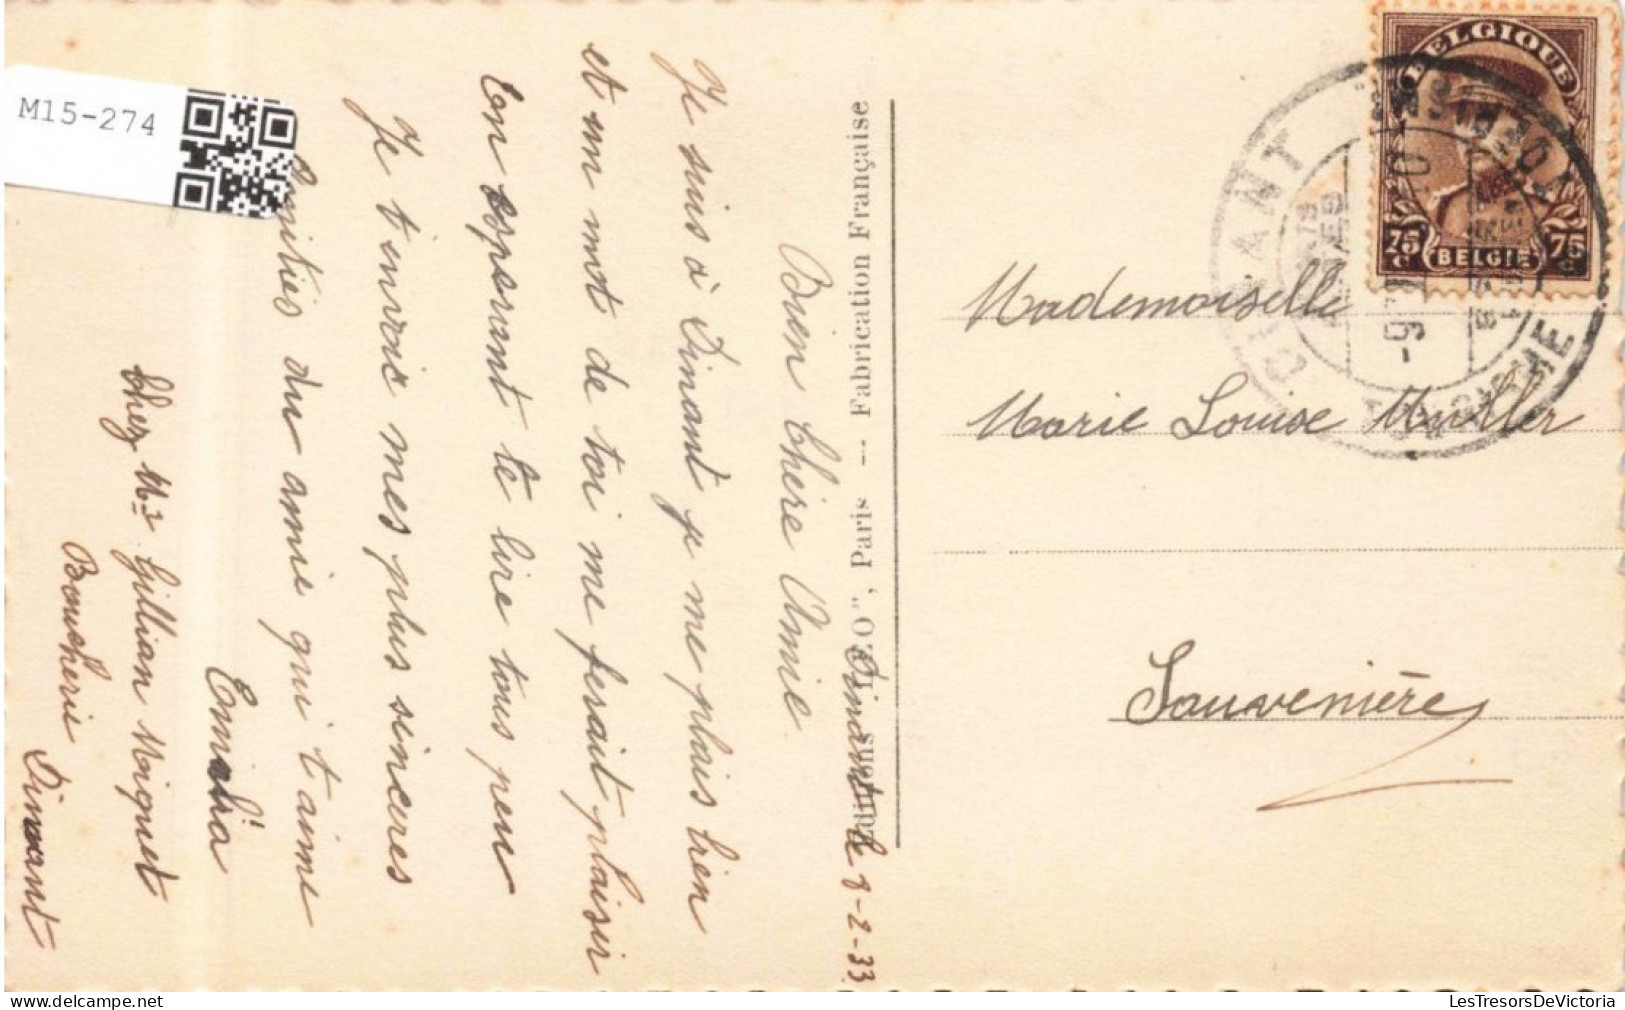 M15-274
Dinant le 8-2-33
Bien Chère Amie
Je suis à Dinant je me plais bien
et un mot de toi me ferait plaisir
En espérant te lire tous peu
Je t'envoie mes plus sinceres
Amitiés du amie qui t'aime
Emélia
Chez Mr Gillian Moiquet
Boucherie
Dinant
Éditions "LEO", Paris — Fabrication Française
BELGIQUE
75 c BELGIE 75 c
DINANT
Mademoiselle
Marie Louise Muller
Sauvenière
LesTresorsDeVictoria